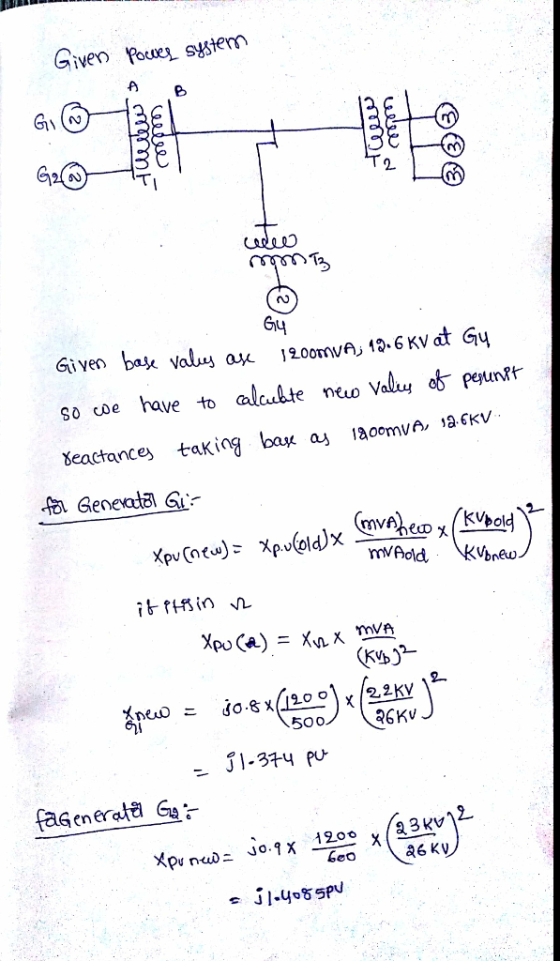 Given Power system
A B
G1 ~
G2 ~
T1
T2
T3
~
G4
Given base values are 1200MVA, 12.6KV at G4
so we have to calculate new values of perunit
reactances taking base as 1200MVA, 12.6KV.
for Generator G1:-
Xpu(new) = Xp.u(old) × (MVA)new / MVAold × (KVbold / KVbnew)²
if it is in Ω
Xpu(Ω) = XΩ × MVA / (KVb)²
Xnew G1 = j0.8 × (1200 / 500) × (22KV / 26KV)²
= j1.374 pu
for Generator G2:-
Xpu new = j0.9 × 1200 / 600 × (23KV / 26KV)²
= j1.4085pu